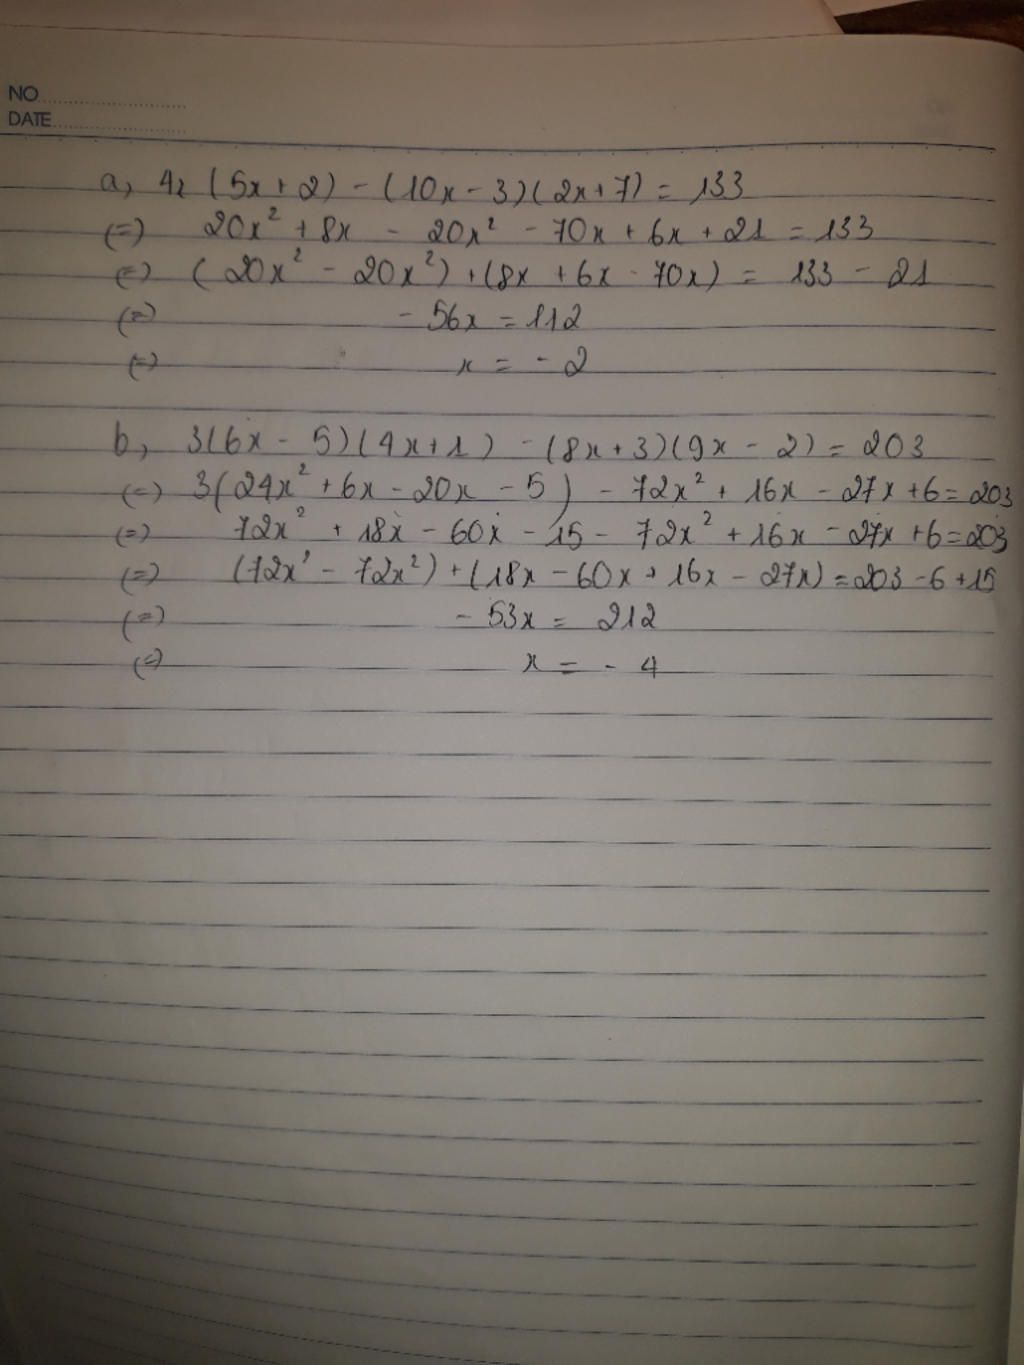 NO
DATE
a, 4x (5x+2) - (10x - 3)(2x+7) = 133
(=) 20x² + 8x - 20x² - 70x + 6x + 21 = 133
(=) (20x² - 20x²) + (8x + 6x - 70x) = 133 - 21
(=) - 56x = 112
(=) x = - 2
b, 3(6x - 5)(4x+1) - (8x+3)(9x - 2) = 203
(=) 3(24x² + 6x - 20x - 5) - 72x² + 16x - 27x + 6 = 203
(=) 72x² + 18x - 60x - 15 - 72x² + 16x - 27x + 6 = 203
(=) (72x² - 72x²) + (18x - 60x + 16x - 27x) = 203 - 6 + 15
(=) - 53x = 212
(=) x = - 4